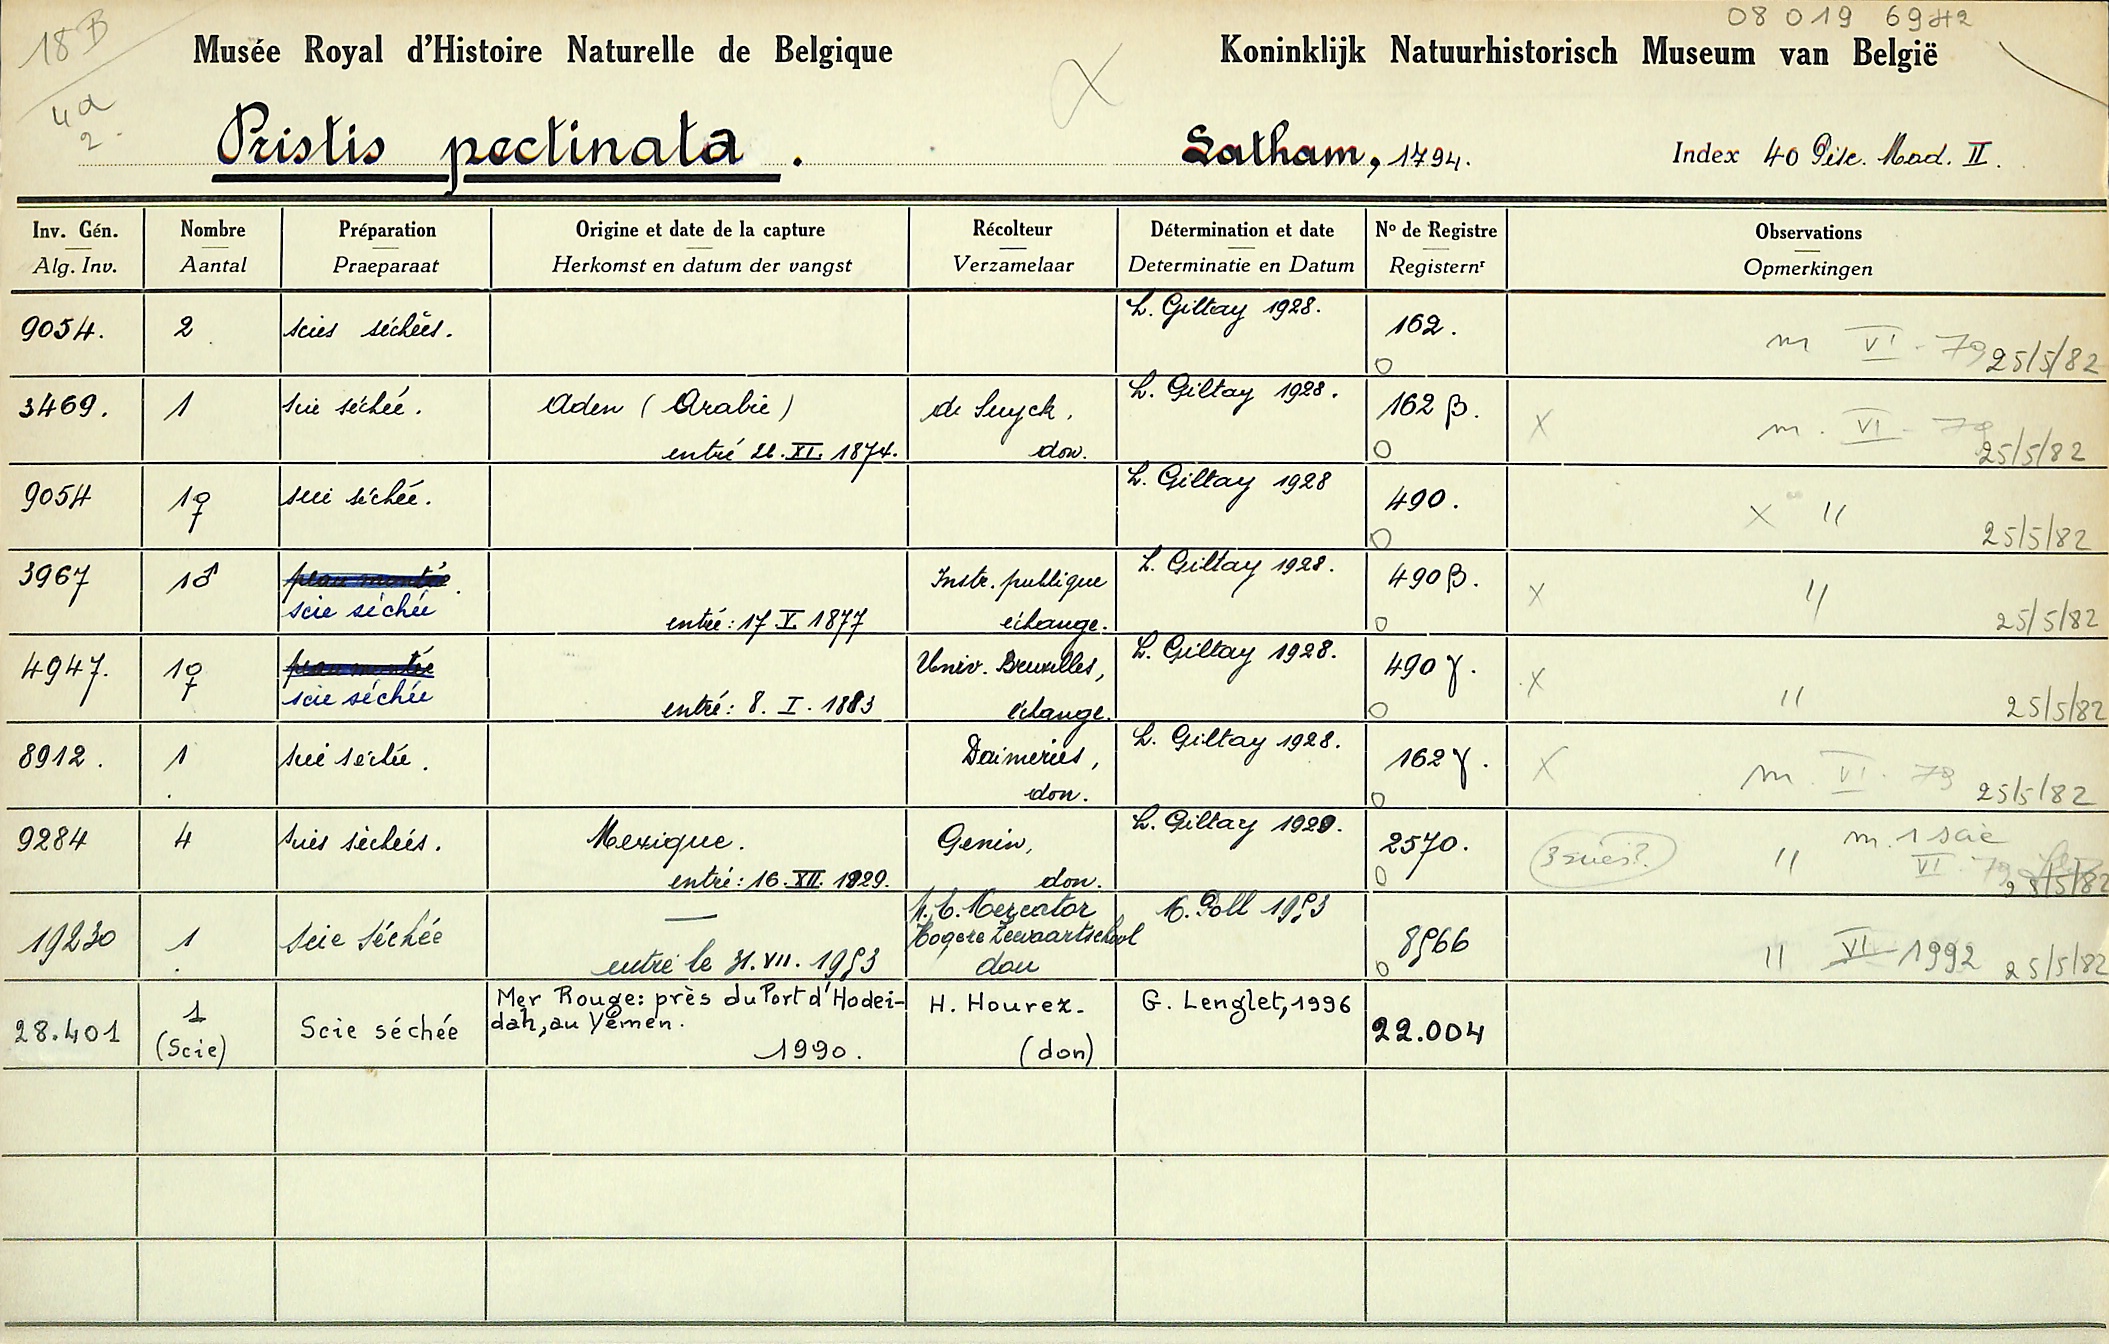 08 019 6942
18B
4a
2.
Musée Royal d'Histoire Naturelle de Belgique
Koninklijk Natuurhistorisch Museum van België
X
Pristis pectinata.
Latham, 1794.
Index 40 Pisc. Mad. II.
Inv. Gén. Nombre Préparation Origine et date de la capture Récolteur Détermination et date N° de Registre Observations
Alg. Inv. Aantal Praeparaat Herkomst en datum der vangst Verzamelaar Determinatie en Datum Registernr Opmerkingen
9054. 2 scies séchées. L. Giltay 1928. 162.
O m VI - 79 25/5/82
3469. 1 scie séchée. Aden (Arabie) de Luyck, L. Giltay 1928. 162 β. X m. VI - 79
entré 26. XI. 1874. don. O 25/5/82
9054 1♀ scie séchée. L. Giltay 1928 490. X "
O 25/5/82
3967 1♂ peau montée. Instr. publique L. Giltay 1928. 490 β. X "
scie séchée entré: 17 V. 1877 échange. O 25/5/82
4947. 1♀ peau montée Univ. Bruxelles, L. Giltay 1928. 490 γ. X "
scie séchée entré: 8. I. 1883 échange. O 25/5/82
8912. 1 scie séchée. Daimeries, L. Giltay 1928. 162 γ. X m VI. 79
don. O 25/5/82
9284 4 scies séchées. Mexique. Genin, L. Giltay 1929. 2570. 3 scies? " m. 1 scie
entré: 16. XII. 1929. don. O VI 79 25/5/82
19230 1 Scie séchée — Mercator M. Poll 1953 8566
Hogere Zeevaartschool
entré le 31. VII. 1953 don O " VI 1992 25/5/82
28.401 1 Scie séchée Mer Rouge: près du Port d'Hodei- H. Hourez. G. Lenglet, 1996 22.004
(Scie) dah, au Yémen.
1990. (don)